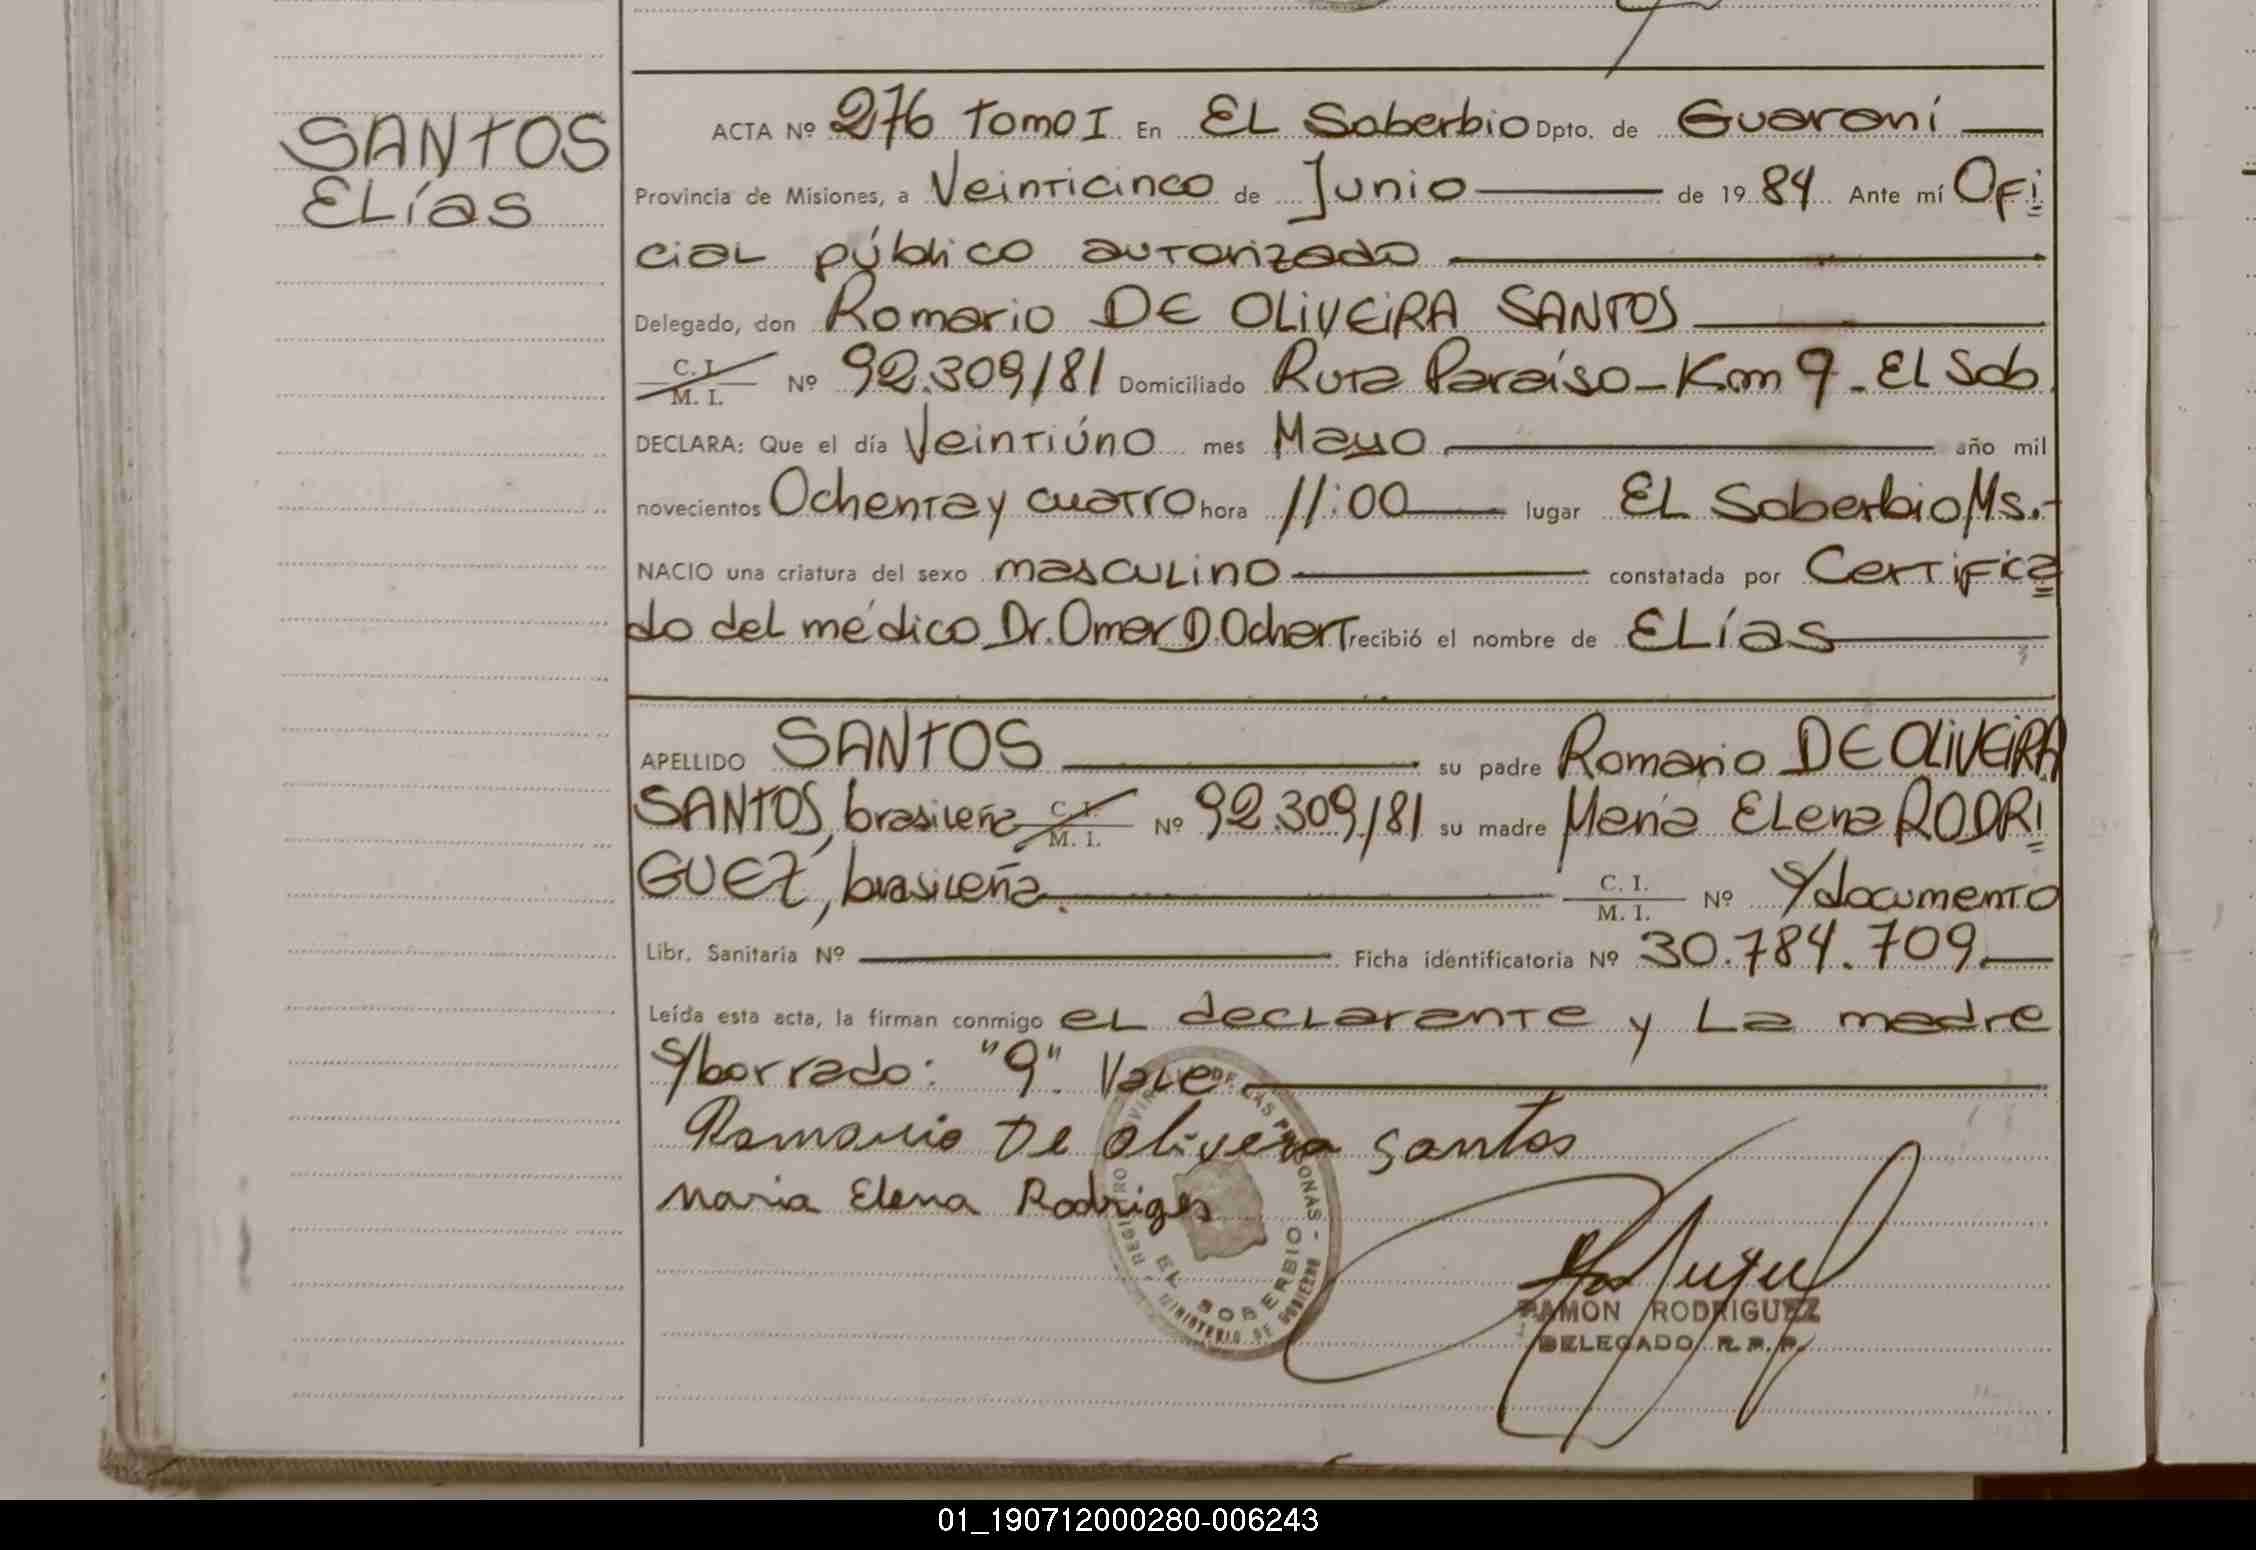 SANTOS
ELías
ACTA Nº 276 Tomo I En EL Soberbio Dpto. de Guaraní
Provincia de Misiones, a Veinticinco de Junio de 1984 Ante mí Ofi
cial público autorizado
Delegado, don Romario DE OLIVEIRA SANTOS
C. I. M. I. Nº 92.309/81 Domiciliado Ruta Paraíso - Km 9 - EL Sob.
DECLARA: Que el día Veintiúno mes Mayo año mil
novecientos Ochenta y cuatro hora 11:00 lugar EL Soberbio Ms.-
NACIO una criatura del sexo masculino constatada por Certifica
do del médico Dr. Omar D. Ochert recibió el nombre de ELías
APELLIDO SANTOS su padre Romario DE OLIVEIRA
SANTOS, brasileña C. I. M. I. Nº 92.309/81 su madre María Elena RODRI
GUEZ, brasileña. C. I. M. I. Nº s/documento
Libr. Sanitaria Nº Ficha identificatoria Nº 30.784.709.
Leída esta acta, la firman conmigo el declarante y La madre
s/borrado: "9". Vale
Romario De Olivera Santos
Maria Elena Rodriges
REGISTRO DE LAS PERSONAS - MINISTERIO DE GOBIERNO
EL SOBERBIO
RAMON RODRIGUEZ
DELEGADO R. P. P.
01_190712000280-006243